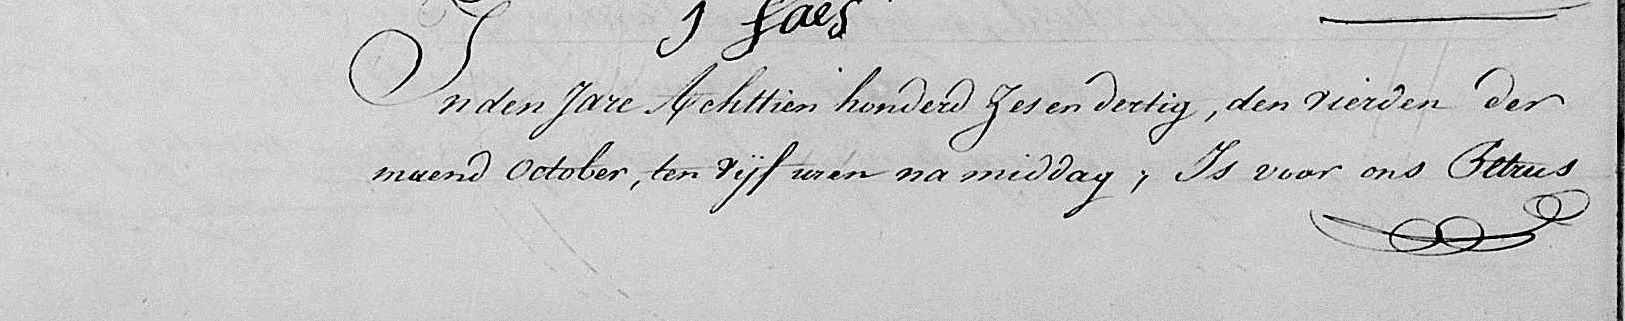 J Faes
In den Jare Achttien honderd Zes en dertig, den vierden der
maend October, ten vijf uren na middag, Is voor ons Petrus